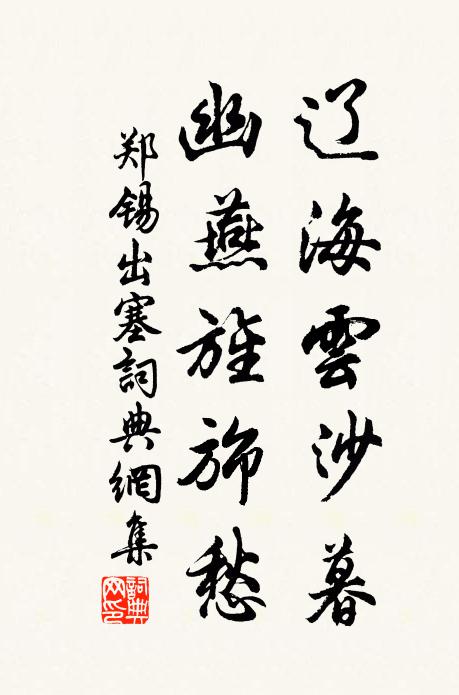 辽海雲沙暮
幽燕旌旆愁
郑锡出塞詞典網集
詞典
网印